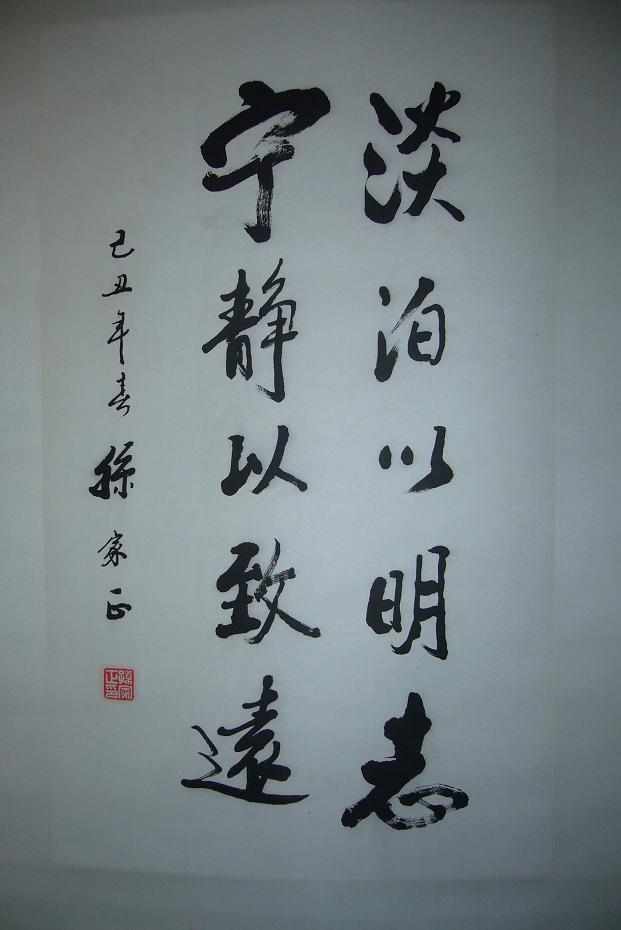 淡泊以明志
宁静以致遠
己丑年春 孫家正
孫家正印